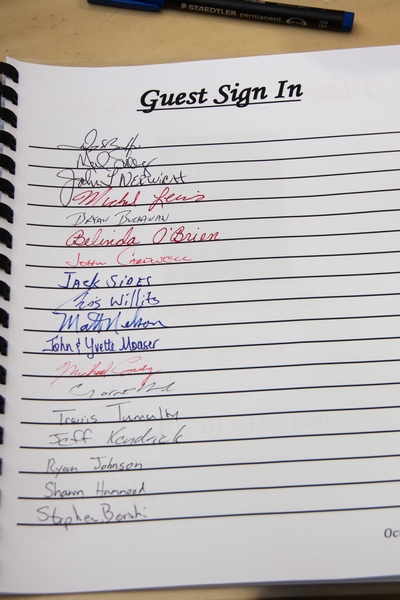 STAEDTLER permanent
Guest Sign In
John
Michel Lewis
BRYAN BUCHANAN
Belinda O'Brien
JOHN
JACK SIDES
Chris Willits
Matt Nelson
John & Yvette Moaser
Michael
Travis Tumulty
Jeff Kendrick
Ryan Johnson
Shawn Hammond
Stephen Borski
Oc